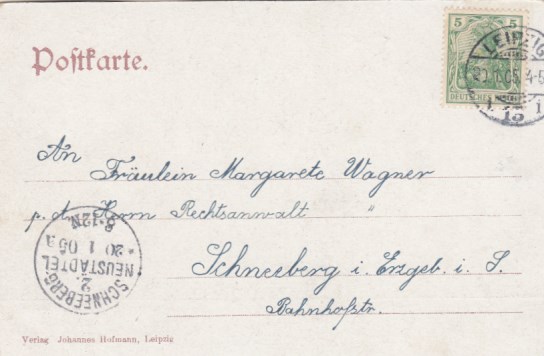 Postkarte.
5 5
DEUTSCHES REICH
LEIPZIG
13
An
Fräulein Margarete Wagner
p. A. Herrn Rechtsanwalt "
Schneeberg i. Erzgeb. i. S.
Bahnhofstr.
SCHNEEBERG-
NEUSTÄDTEL
2.
20 1 05
8-12N.
Verlag Johannes Hofmann, Leipzig